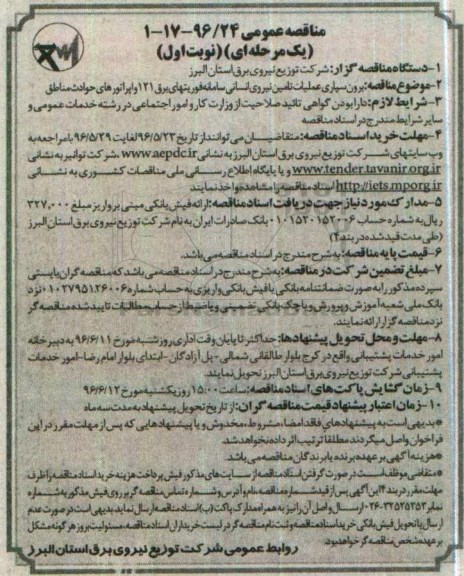 مناقصه عمومی ۹۶/۲۴-۱۷-۱
(یک مرحله ای) (نوبت اول)
۱-دستگاه مناقصه گزار: شرکت توزیع نیروی برق استان البرز
۲-موضوع مناقصه: برون سپاری عملیات تامین نیروی انسانی سامانه فوریتهای برق ۱۲۱ و اپراتورهای حوادث مناطق
۳-شرایط لازم: دارا بودن گواهی تائید صلاحیت از وزارت کار و امور اجتماعی در رشته خدمات عمومی و
سایر شرایط مندرج در اسناد مناقصه
۴-مهلت خرید اسناد مناقصه: متقاضیان می توانند از تاریخ ۹۶/۵/۲۳ لغایت ۹۶/۵/۲۹ با مراجعه به
وب سایتهای شرکت توزیع نیروی برق استان البرز به نشانی www.aepdc.ir، شرکت توانیر به نشانی
www.tender.tavanir.org.ir و یا پایگاه اطلاع رسانی ملی مناقصات کشوری به نشانی
http://iets.mporg.ir اسناد مناقصه را مشاهده و اخذ نمایند
۵-مدارک مورد نیاز جهت دریافت اسناد مناقصه: ارائه فیش بانکی مبنی بر واریز مبلغ ۳۲۷,۰۰۰
ریال به شماره حساب ۰۱۰۱۵۲۰۱۵۲۰۰۶ بانک صادرات ایران به نام شرکت توزیع نیروی برق استان البرز
(طی مدت قید شده در بند ۴)
۶-قیمت پایه مناقصه: به شرح مندرج در اسناد مناقصه می باشد.
۷-مبلغ تضمین شرکت در مناقصه: به شرح مندرج در اسناد مناقصه می باشد که مناقصه گران بایستی
سپرده مذکور را به صورت ضمانتنامه بانکی یا فیش بانکی واریزی به حساب شماره ۰۱۰۲۷۹۵۱۲۶۰۰۶ نزد
بانک ملی شعبه آموزش و پرورش و یا چک بانکی تضمینی و یا ضبط از حساب مطالبات تایید شده مناقصه گر
نزد مناقصه گزار ارائه نمایند.
۸-مهلت و محل تحویل پیشنهادها: حداکثر تا پایان وقت اداری روز شنبه مورخ ۹۶/۶/۱۱ به دبیرخانه
امور خدمات پشتیبانی واقع در کرج بلوار طالقانی شمالی-پل آزادگان-ابتدای بلوار امام رضا-امور خدمات
پشتیبانی شرکت توزیع نیروی برق استان البرز تحویل نمایند.
۹-زمان گشایش پاکت های اسناد مناقصه: ساعت ۱۵:۰۰ روز یکشنبه مورخ ۹۶/۶/۱۲
۱۰-زمان اعتبار پیشنهاد قیمت مناقصه گران: از تاریخ تحویل پیشنهاد به مدت سه ماه
*بدیهی است به پیشنهادهای فاقد امضاء، مشروط، مخدوش و یا پیشنهادهایی که پس از مهلت مقرر در این
فراخوان واصل میگردند مطلقا ترتیب اثر داده نخواهد شد.
*هزینه آگهی بر عهده برنده یا برندگان مناقصه می باشد.
*متقاضی موظف است در صورت گرفتن اسناد مناقصه از سایت های مذکور فیش پرداخت هزینه خرید اسناد مناقصه را ظرف
مهلت مقرر در بند ۴ این آگهی پس از قید شماره مناقصه، نام و آدرس و شماره تماس مناقصه گر بر روی فیش مذکور به شماره
نمابر ۳۲۵۲۵۲۵۲-۰۲۶ ارسال و اصل آن را نیز به همراه مدارک پاکت (ب) اسناد مناقصه ارسال نماید. بدیهی است در صورت عدم
ارسال یا تحویل فیش بانکی خرید اسناد مناقصه و ثبت نام مناقصه گر در لیست خریداران اسناد مناقصه، مسئولیت بروز هر گونه مشکل
بر عهده شخص مناقصه گر خواهد بود.
روابط عمومی شرکت توزیع نیروی برق استان البرز